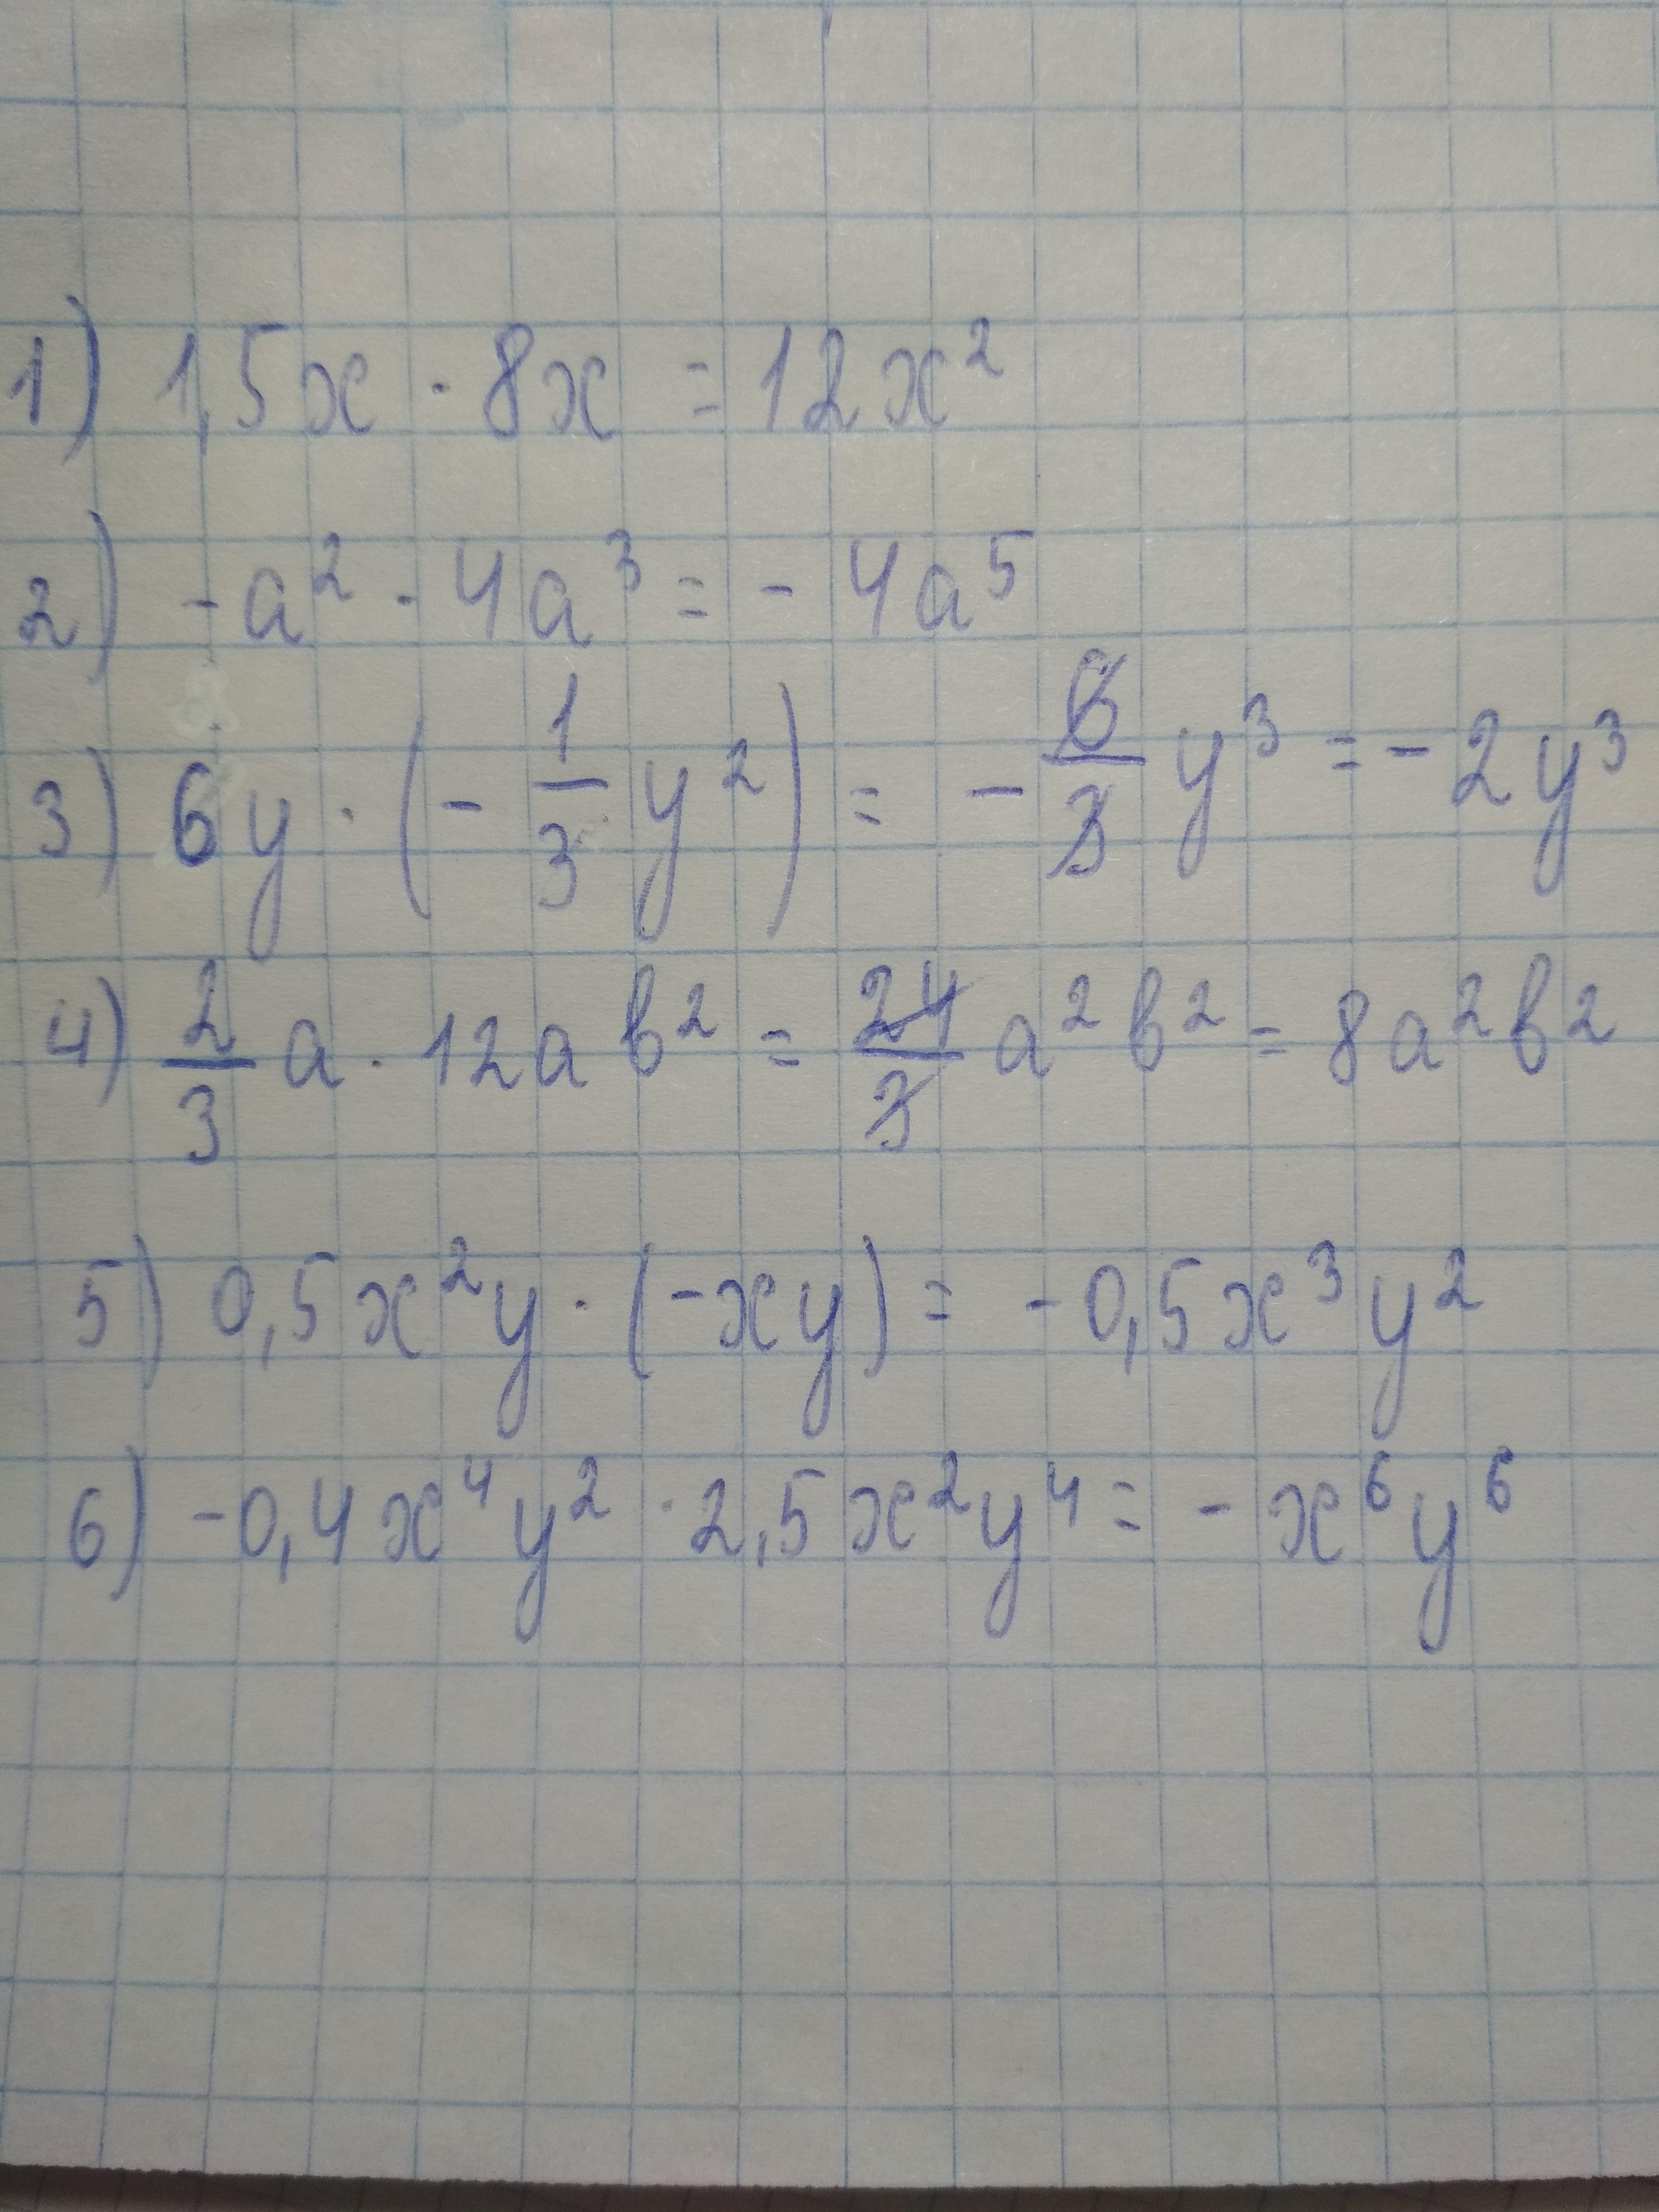 1) 1,5x · 8x = 12x²
2) -a² · 4a³ = - 4a⁵
3) 6y · (- 1/3 y²) = - 6/3 y³ = - 2y³
4) 2/3 a · 12ab² = 24/3 a²b² = 8a²b²
5) 0,5x²y · (-xy) = - 0,5x³y²
6) -0,4x⁴y² · 2,5x²y⁴ = - x⁶y⁶